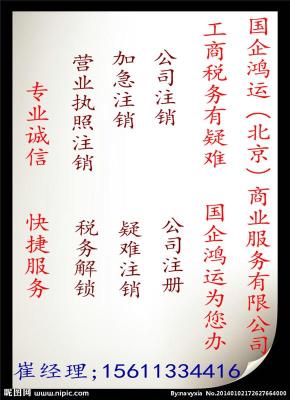 国企鸿运（北京）商业服务有限公司
工商税务有疑难
国企鸿运为您办
公司注销
公司注册
加急注销
疑难注销
营业执照注销
税务解锁
专业诚信
快捷服务
崔经理;15611334416
昵图网 www.nipic.com
By:navyxia No.20140102172627664000